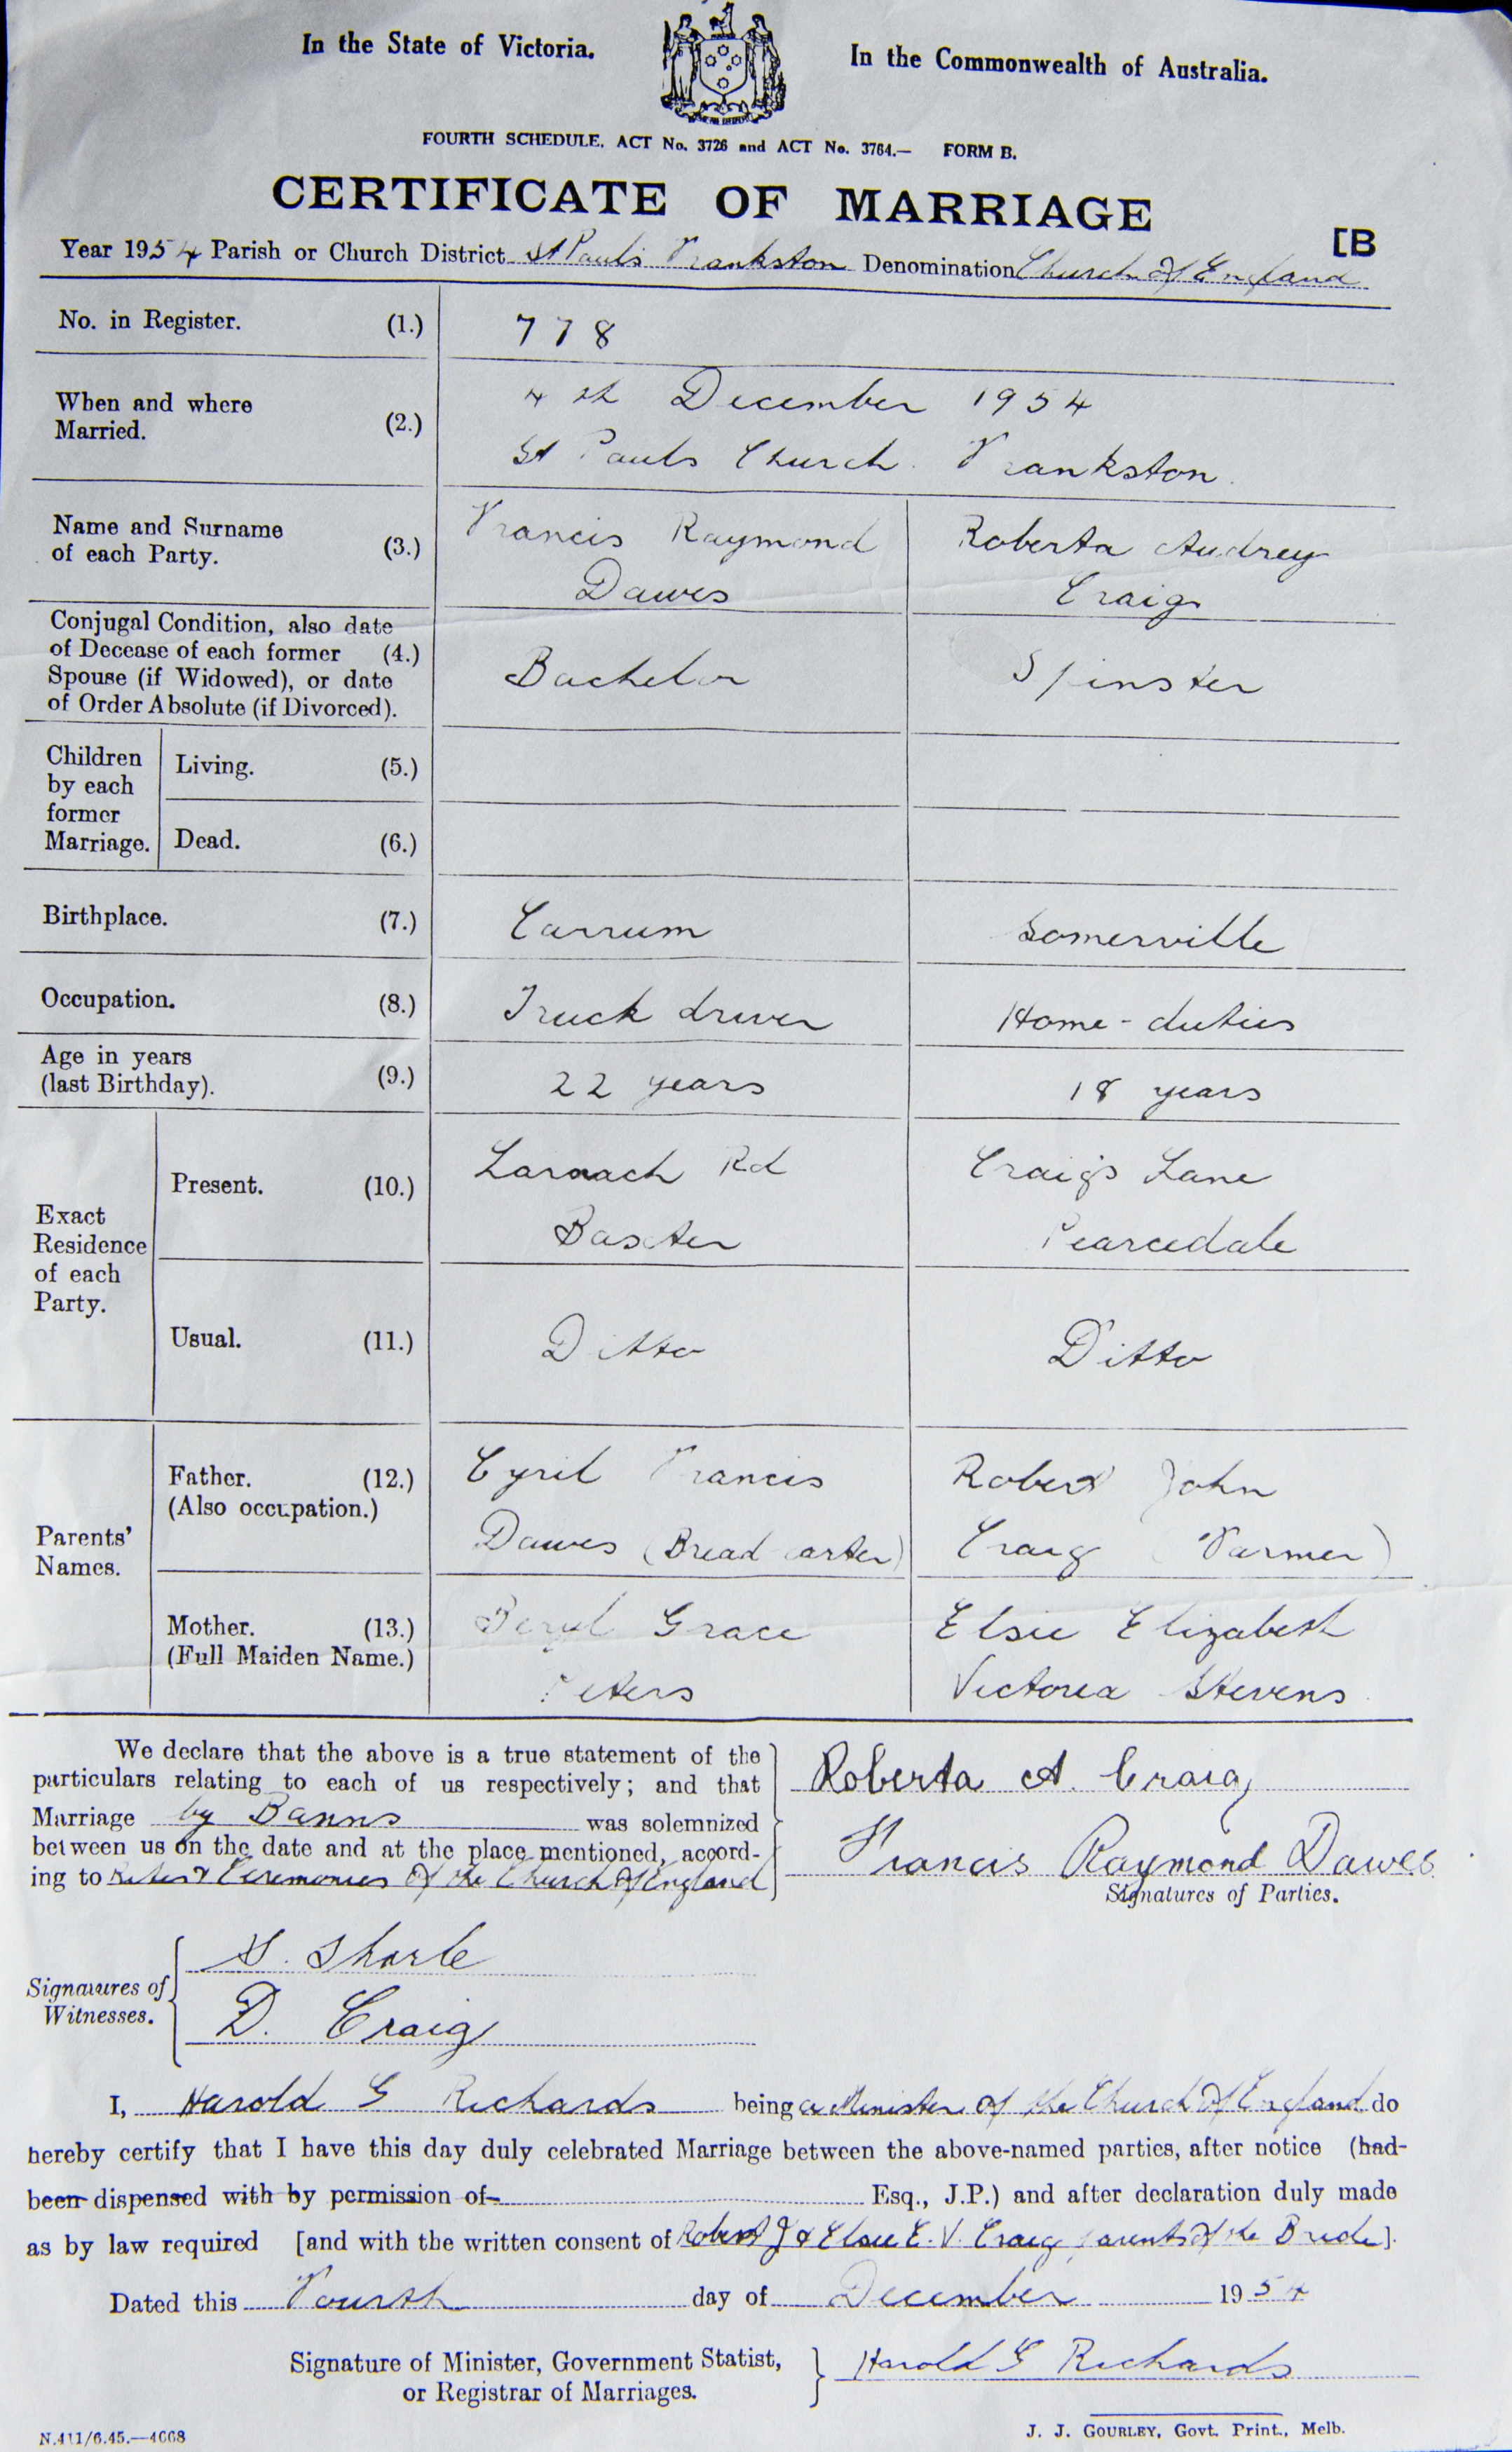 In the State of Victoria.
In the Commonwealth of Australia.
FOURTH SCHEDULE, ACT No. 3726 and ACT No. 3764.— FORM B.
CERTIFICATE OF MARRIAGE
[B
Year 1954 Parish or Church District St Paul's Frankston Denomination Church of England
No. in Register. (1.) 778
When and where Married. (2.) 4th December 1954
St Pauls Church. Frankston.
Name and Surname of each Party. (3.) Francis Raymond Dawes Roberta Audrey Craig
Conjugal Condition, also date
of Decease of each former (4.)
Spouse (if Widowed), or date
of Order Absolute (if Divorced).
Bachelor Spinster
Children by each former Marriage.
Living. (5.)
Dead. (6.)
Birthplace. (7.) Carrum Somerville
Occupation. (8.) Truck driver Home-duties
Age in years (last Birthday). (9.) 22 years 18 years
Exact Residence of each Party.
Present. (10.) Rd Baxter Craig's Lane Pearcedale
Usual. (11.) Ditto Ditto
Parents' Names.
Father. (12.) (Also occupation.) Cyril Francis Dawes (Bread carter) Robert John Craig (Farmer)
Mother. (13.) (Full Maiden Name.) Beryl Grace Peters Elsie Elizabeth Victoria Stevens
We declare that the above is a true statement of the
particulars relating to each of us respectively; and that
Marriage by Banns was solemnized
between us on the date and at the place mentioned, accord-
ing to Rites & Ceremonies of the Church of England
Roberta A. Craig
Francis Raymond Dawes.
Signatures of Parties.
Signatures of Witnesses.
D. Craig
I, Harold G Richards being a Minister of the Church of England do
hereby certify that I have this day duly celebrated Marriage between the above-named parties, after notice (had-
been dispensed with by permission of Esq., J.P.) and after declaration duly made
as by law required [and with the written consent of Robert J & Elsie E. V. Craig parents of the Bride].
Dated this Fourth day of December 1954
Signature of Minister, Government Statist,
or Registrar of Marriages.
Harold G Richards
N.411/6.45.—4668
J. J. GOURLEY, Govt. Print., Melb.